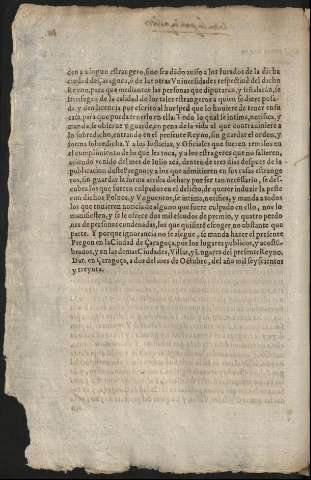 den a ningun estrangero, sino sea dãdo auiso a los Iurados de la dicha
ciudad de Çaragoça, ò de las otras Vniuersidades respectiuè del dicho
Reyno, para que mediante las personas que diputaràn, y señalaràn, se
de la calidad de los tales estrangeros a quien se diere posa-
da, y den licencia por escrito al huesped que lo huuiere de tener en su
casa, para que pueda tenerlo en ella. Todo lo qual se intima, notifica, y
manda, se obserue y guarde, en pena de la vida al que contrauiniere a
lo sobredicho, entrado en el presente Reyno, sin guardar el orden, y
forma sobredicha. Y a los Iusticias, y Oficiales que fueren remisos en
el cumplimiento de lo que les toca, y a los estrangeros que no salieren,
auiendo venido del mes de Iulio acà, dentro de tres dias despues de la
publicacion deste Pregon, y a los que admitieren en sus casas estrange
ros, sin guardar la forma arriba dicha: y por ser tan necessario, se des-
cubra los que fueren culpados en el delicto, de querer induzir la peste
con dichos Poluos, y Vnguentos, se intima, notifica, y manda a todos
los que tuuieren noticia de alguno que fuere culpado en ello, nos lo
manifiesten, y se le ofrece dos mil escudos de premio, y quatro perdo
nes de personas condenadas, los que quisiere escoger, no obstante que
parte. Y porque ignorancia no se alegue, se manda hazer el presente
Pregon en la Ciudad de Çaragoça, por los lugares publicos, y acostũ-
brados, y en las demas Ciudades, Villas, y Lugares del presente Reyno.
Dat. en Çaragoça, a dos del mes de Octubre, del año mil seyscientos
y treynta.